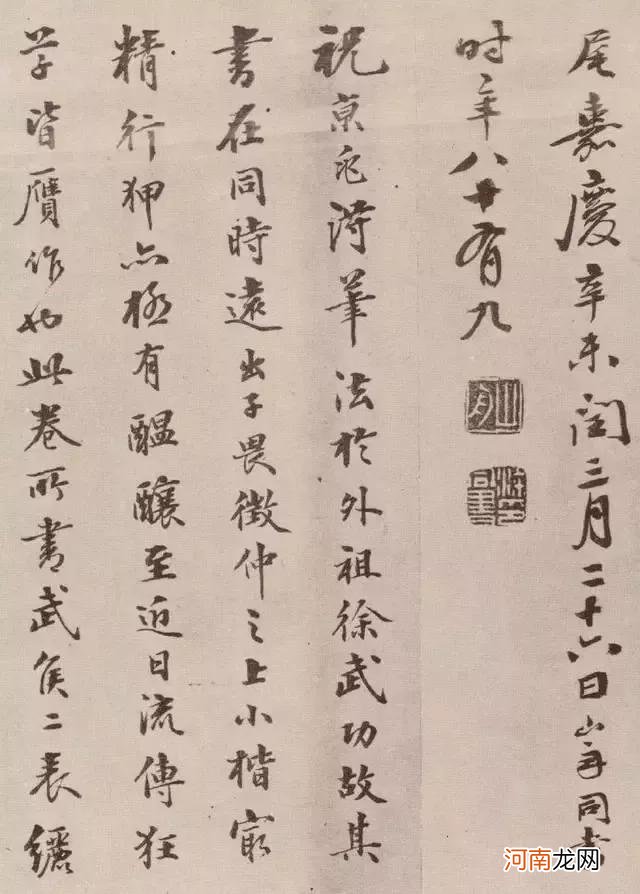 尾嘉慶辛未閏三月二十六日山舟同書
时年八十有九
祝京兆得筆法於外祖徐武功故其
書在同時遠出子畏徵仲之上小楷最
精行狎亦極有醞釀至近日流傳狂
草皆贗作也此卷所書武侯二表纚
河南龙网